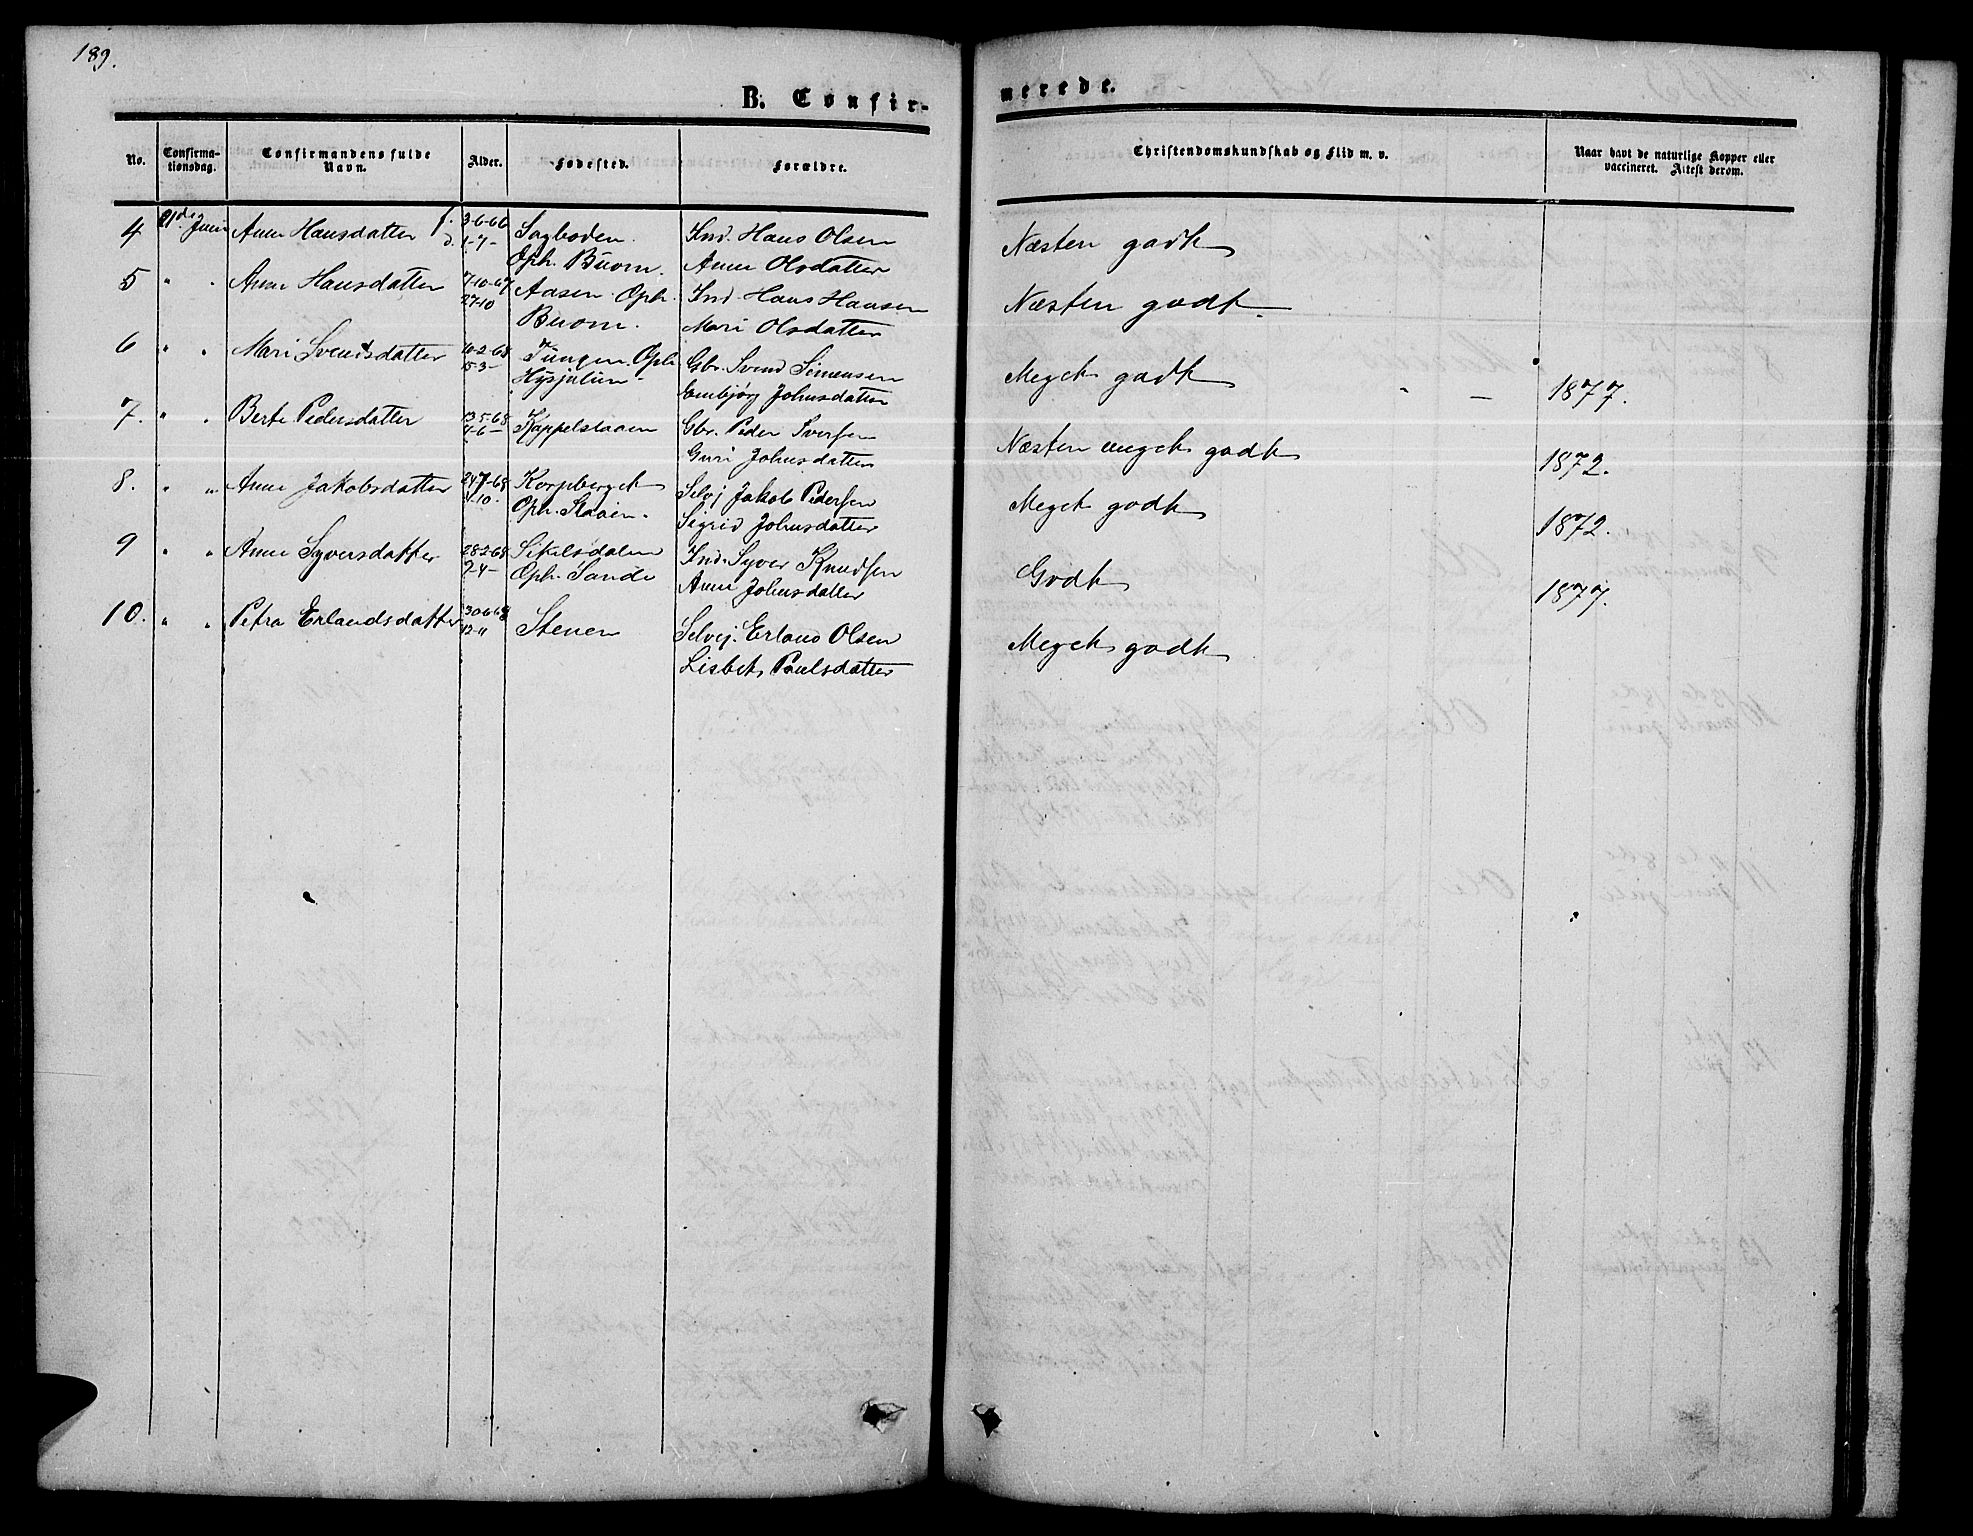 189.
B. Confirmerede.
No.
Confirmationsdag.
Confirmandens fulde Navn.
Alder.
Fødested.
Forældre.
Christendomskundskab og Flid m. v.
Naar havt de naturlige Kopper eller vaccineret. Attest derom.
4 21de Juni Anne Hansdatter f. 3-6-66 Sagboden. Ind. Hans Olsen Næsten godt
d. 1-7- Oph. Buom. Anne Olsdatter
5 " " Anne Hansdatter 7-10-67 Aasen. Oph. Ind. Hans Hansen Næsten godt
27-10 Buom. Mari Olsdatter
6 " " Mari Svendsdatter 10-2-68 Tungen. Oph. Gbr. Svend Simensen Meget godt 1877.
15-3- Embjørg Johnsdatter
7. " " Berte Pedersdatter 13-5-68 Kappelslaaen Gbr. Peder Iversen Næsten meget godt 1872.
7-6- Guri Johnsdatter
8. " " Anne Jakobsdatter 24-7-68 Korpberget Selvej Jakob Pedersen Meget godt 1872.
4-10. Oph. Slaaen. Sigrid Johnsdatter
9 " " Anne Syversdatter 28-2-68 Sikelsdalen Ind. Syver Knudsen Godt 1877.
2-4- Oph. Sande Anne Johnsdatter
10. " " Petra Erlandsdatter 30-6-68 Stenen Selvej. Erland Olsen Meget godt
12-11 Lisbet Paulsdatter